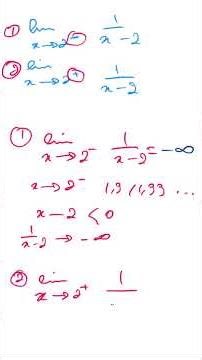 ① lim x→2⁻ 1/(x-2)
② lim x→2⁺ 1/(x-2)
① lim x→2⁻ 1/(x-2) = -∞
x→2⁻ 1,9 / 1,99 ...
x-2 < 0
1/(x-2) → -∞
② lim x→2⁺ 1/